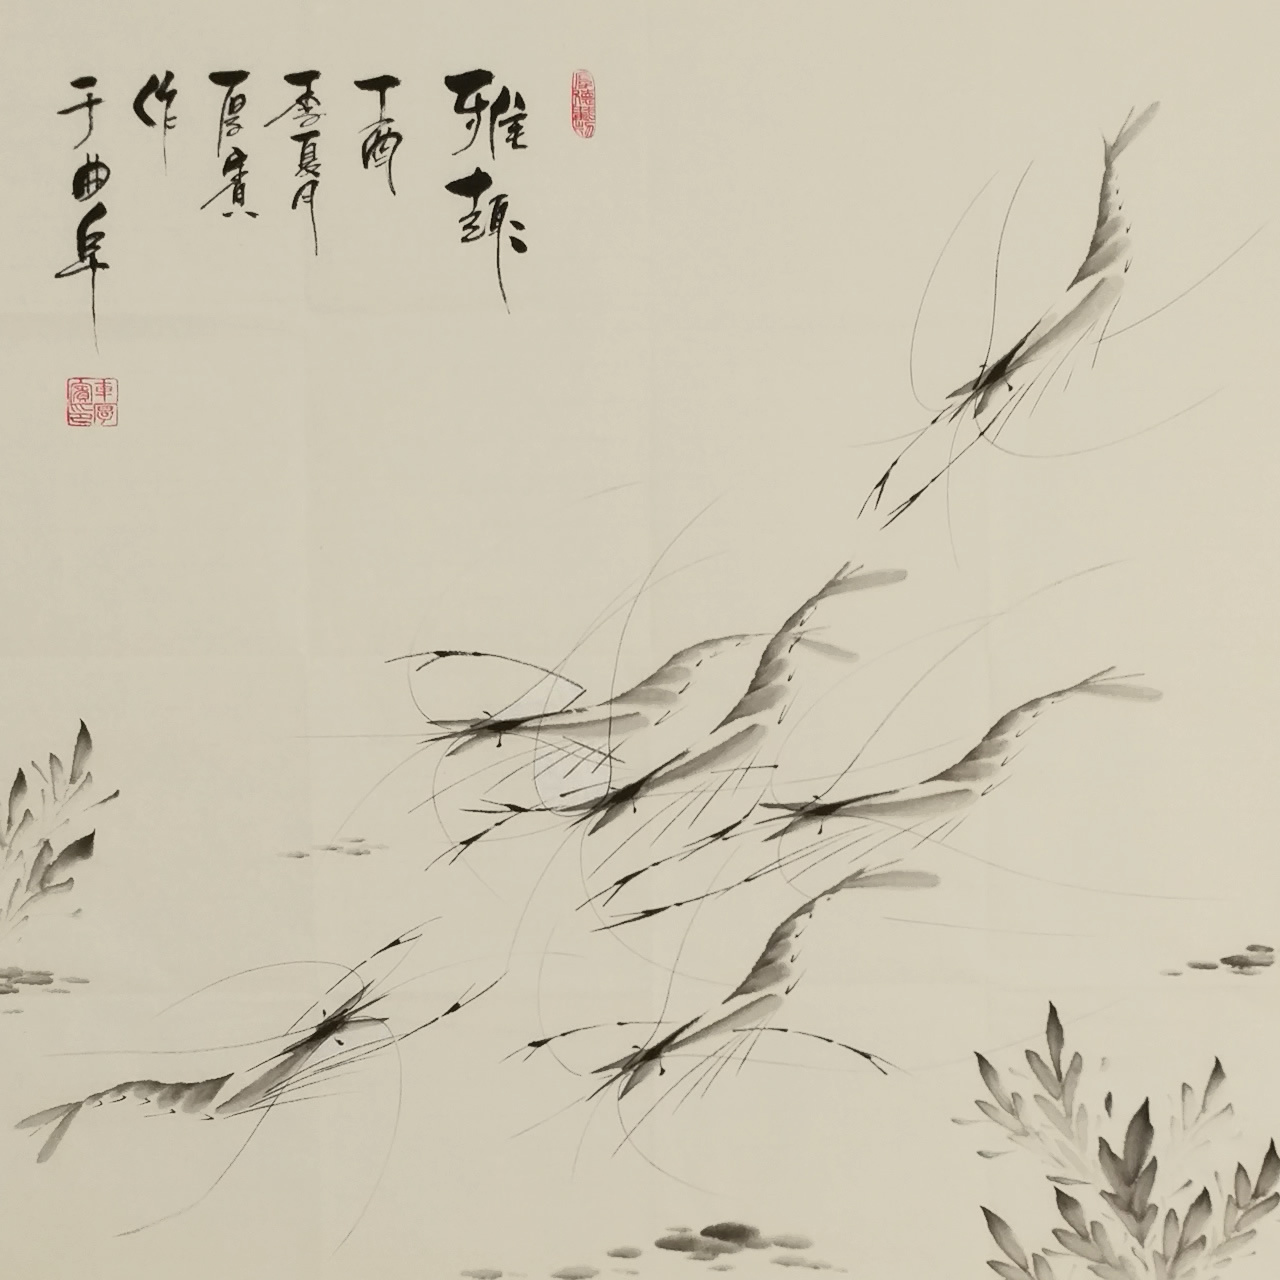 雅趣
丁酉
季夏月
厚賓
作
于曲阜